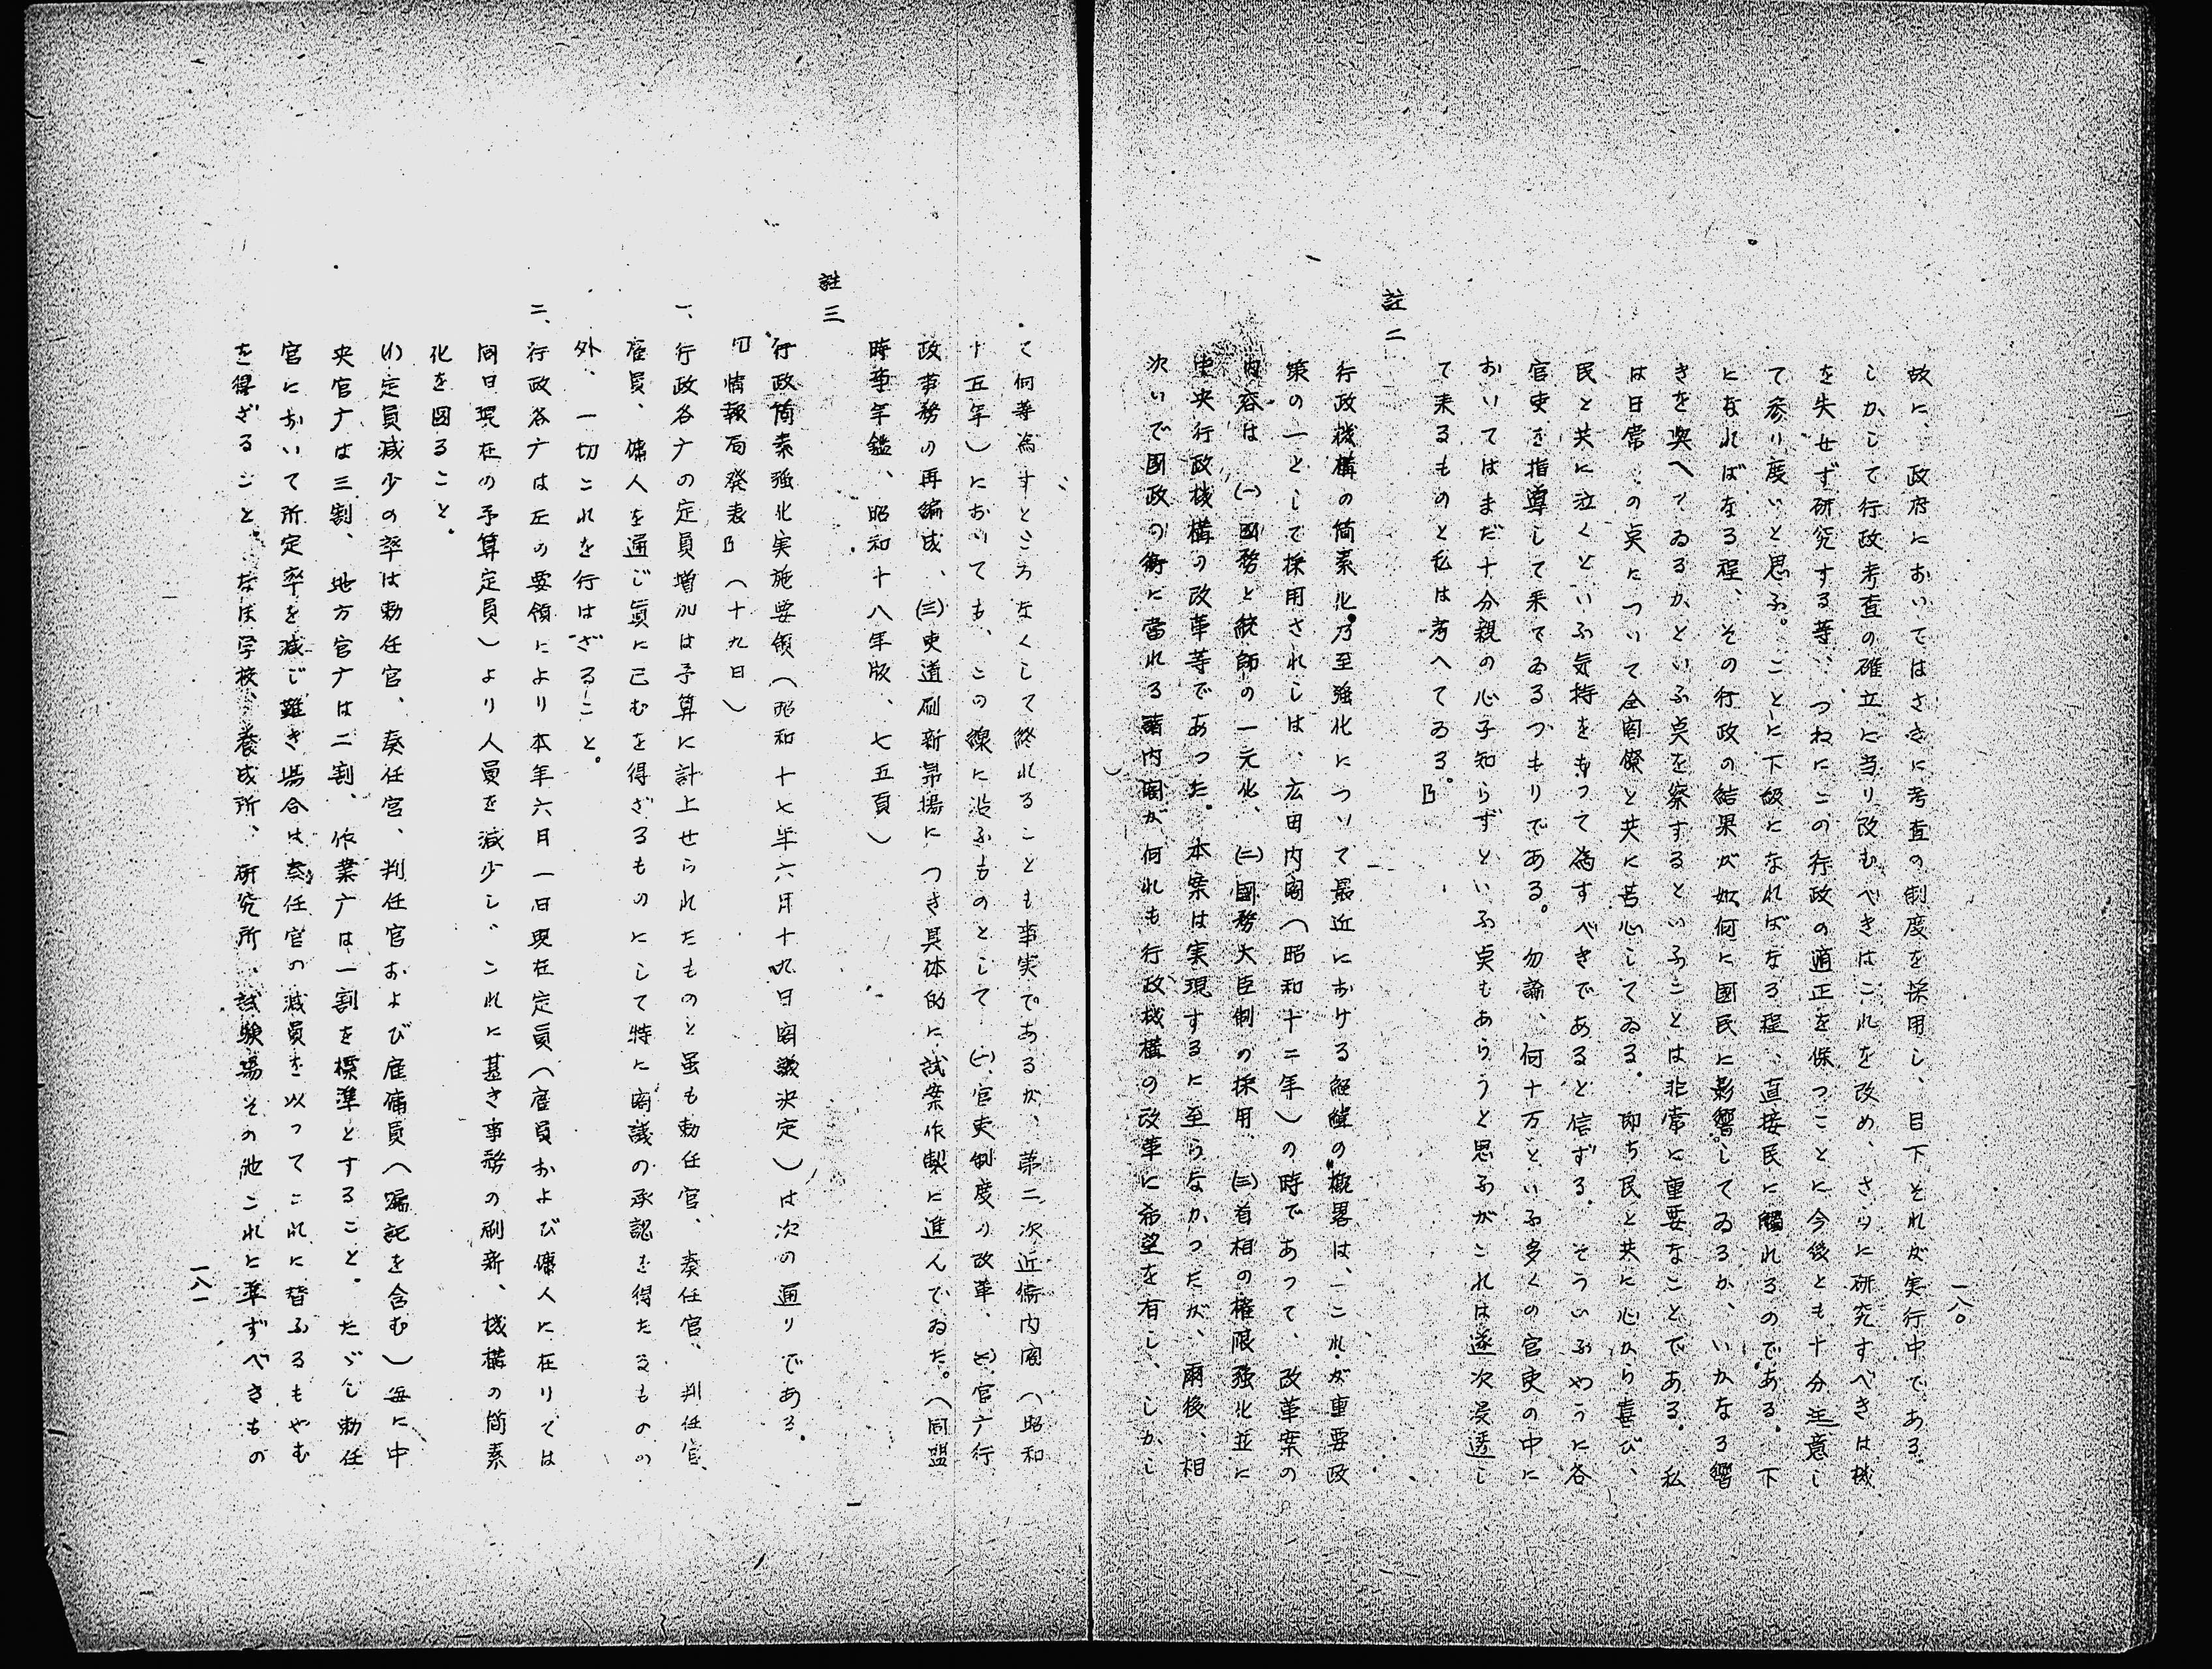 一八〇
故に、政府においてはさきに考査の制度を採用し、目下それが実行中である。
しかして行政考査の確立に当り改むべきはこれを改め、さらに研究すべきは機
を失せず研究する等、つねにこの行政の適正を保つことに今後とも十分注意し
て参り度いと思ふ。ことに下級になればなる程、直接民に觸れるのである。下
になればなる程、その行政の結果が如何に国民に影響してゐるか、いかなる響
きを與へてゐるかといふ点を察するといふことは非常に重要なことである。私
は日常この点について全閣僚と共に苦心してゐる。即ち民と共に心から喜び、
民と共に泣くといふ気持をもつて為すべきであると信ずる。そういふやうに各
官吏を指導して来てゐるつもりである。勿論、何十万といふ多くの官吏の中に
おいてはまだ十分親の心子知らずといふ点もあらうと思ふがこれは逐次浸透し
て来るものと私は考へてゐる。』
註二
行政機構の简素化乃至強化について最近における経緯の概畧は、これが重要政
策の一として採用されしは、広田内閣（昭和十二年）の時であつて、改革案の
内容は (一)國務と統師の一元化、(二)國務大臣制の採用 (三)首相の権限強化並に
中央行政機構の改革等であつた。本案は実現するに至らなかつたが、爾後、相
次いで国政の衝に當れる諸内閣が何れも行政機構の改革に希望を有し、しかし
て何等為すところなくして終れることも事実であるが、第二次近衞内閣（昭和
十五年）においても、この線に沿ふものとして (一)官吏制度の改革、(二)官庁行
政事務の再編成、(三)吏道刷新昂揚につき具体的に試案作製に進んでゐた。（同盟
時事年鑑、昭和十八年版、七五頁）
註三
行政简素強化実施要領（昭和十七年六月十九日閣議決定）は次の通りである。
『情報局発表』（十九日）
一、行政各庁の定員増加は予算に計上せられたものと虽も勅任官、奏任官、判任官、
雇員、傭人を通じ眞に已むを得ざるものにして特に閣議の承認を得たるものの
外、一切これを行はざること。
二、行政各庁は左の要領により本年六月一日現在定員（雇員および傭人に在りては
同日現在の予算定員）より人員を減少し、これに基き事務の刷新、機構の简素
化を図ること。
(イ)定員減少の率は勅任官、奏任官、判任官および雇傭員（嘱託を含む）毎に中
央官庁は三割、地方官庁は二割、作業庁は一割を標準とすること。たゞし勅任
官において所定率を減じ難き場合は奏任官の減員を以つてこれに替ふるもやむ
を得ざること、なほ学校、養成所、研究所、試験場その他これに準ずべきもの
一八一